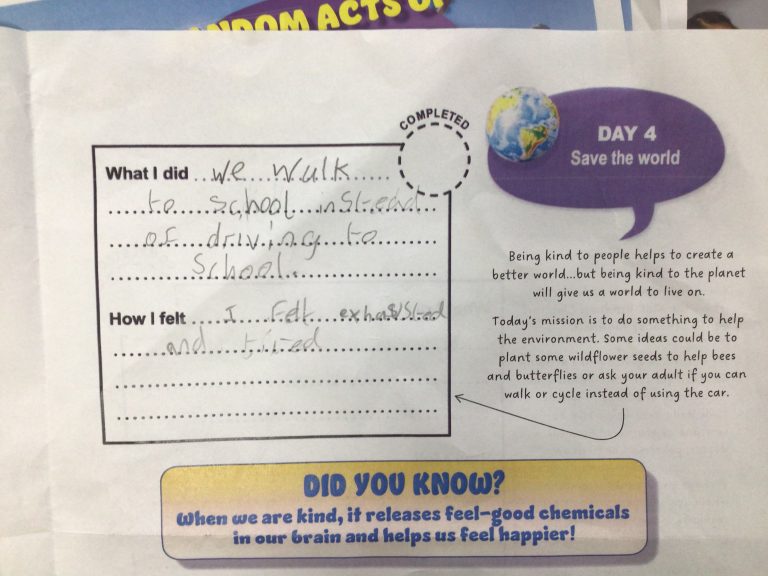 RANDOM ACTS OF
COMPLETED
What I did we walk
to school instead
of driving to
School.
How I felt I felt exhausted
and tired
DAY 4
Save the world
Being kind to people helps to create a
better world...but being kind to the planet
will give us a world to live on.
Today's mission is to do something to help
the environment. Some ideas could be to
plant some wildflower seeds to help bees
and butterflies or ask your adult if you can
walk or cycle instead of using the car.
DID YOU KNOW?
When we are kind, it releases feel-good chemicals
in our brain and helps us feel happier!